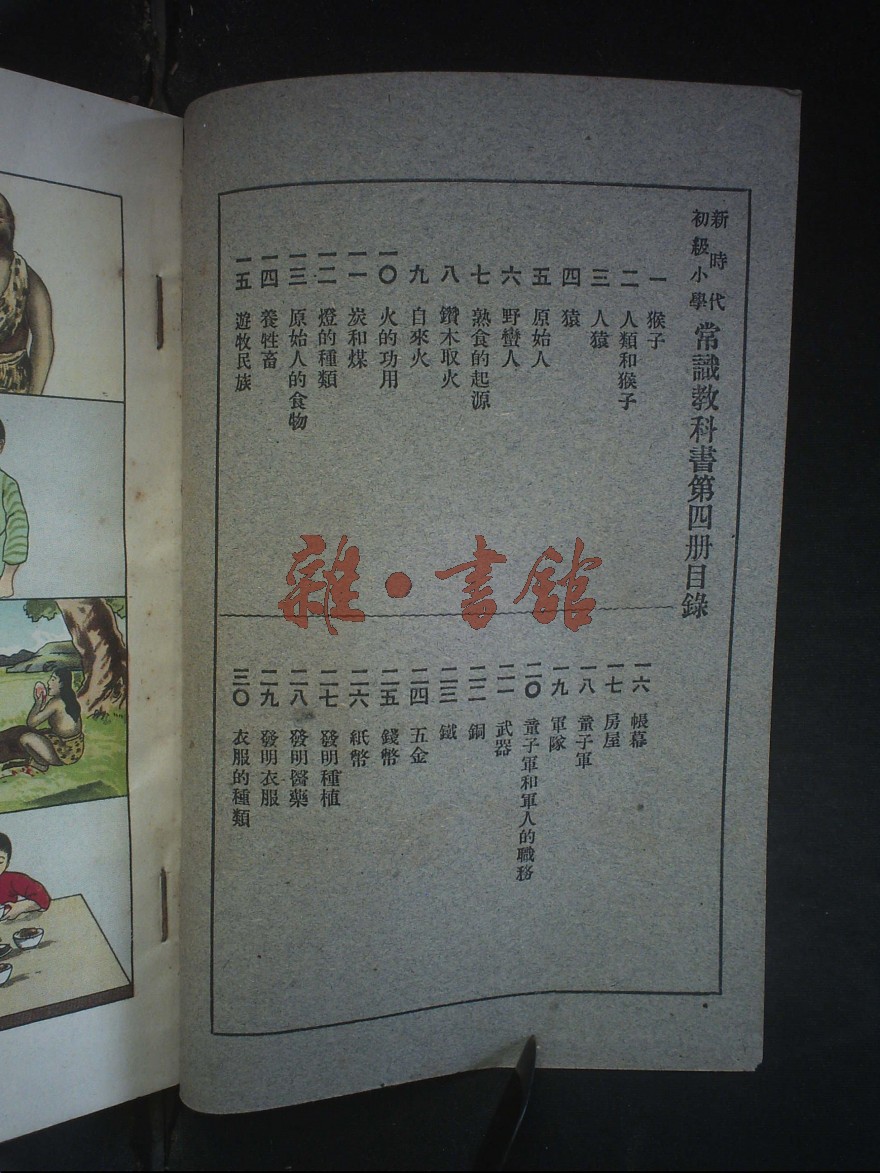 新時代
初級小學
常識教科書第四册目錄
一 猴子
二 人類和猴子
三 人猿
四 猿
五 原始人
六 野蠻人
七 熟食的起源
八 鑽木取火
九 自來火
一〇 火的功用
一一 炭和煤
一二 燈的種類
一三 原始人的食物
一四 養牲畜
一五 遊牧民族
一六 帳幕
一七 房屋
一八 童子軍
一九 軍隊
二〇 童子軍和軍人的職務
二一 武器
二二 銅
二三 鐵
二四 五金
二五 錢幣
二六 紙幣
二七 發明種植
二八 發明醫藥
二九 發明衣服
三〇 衣服的種類
雜·書館